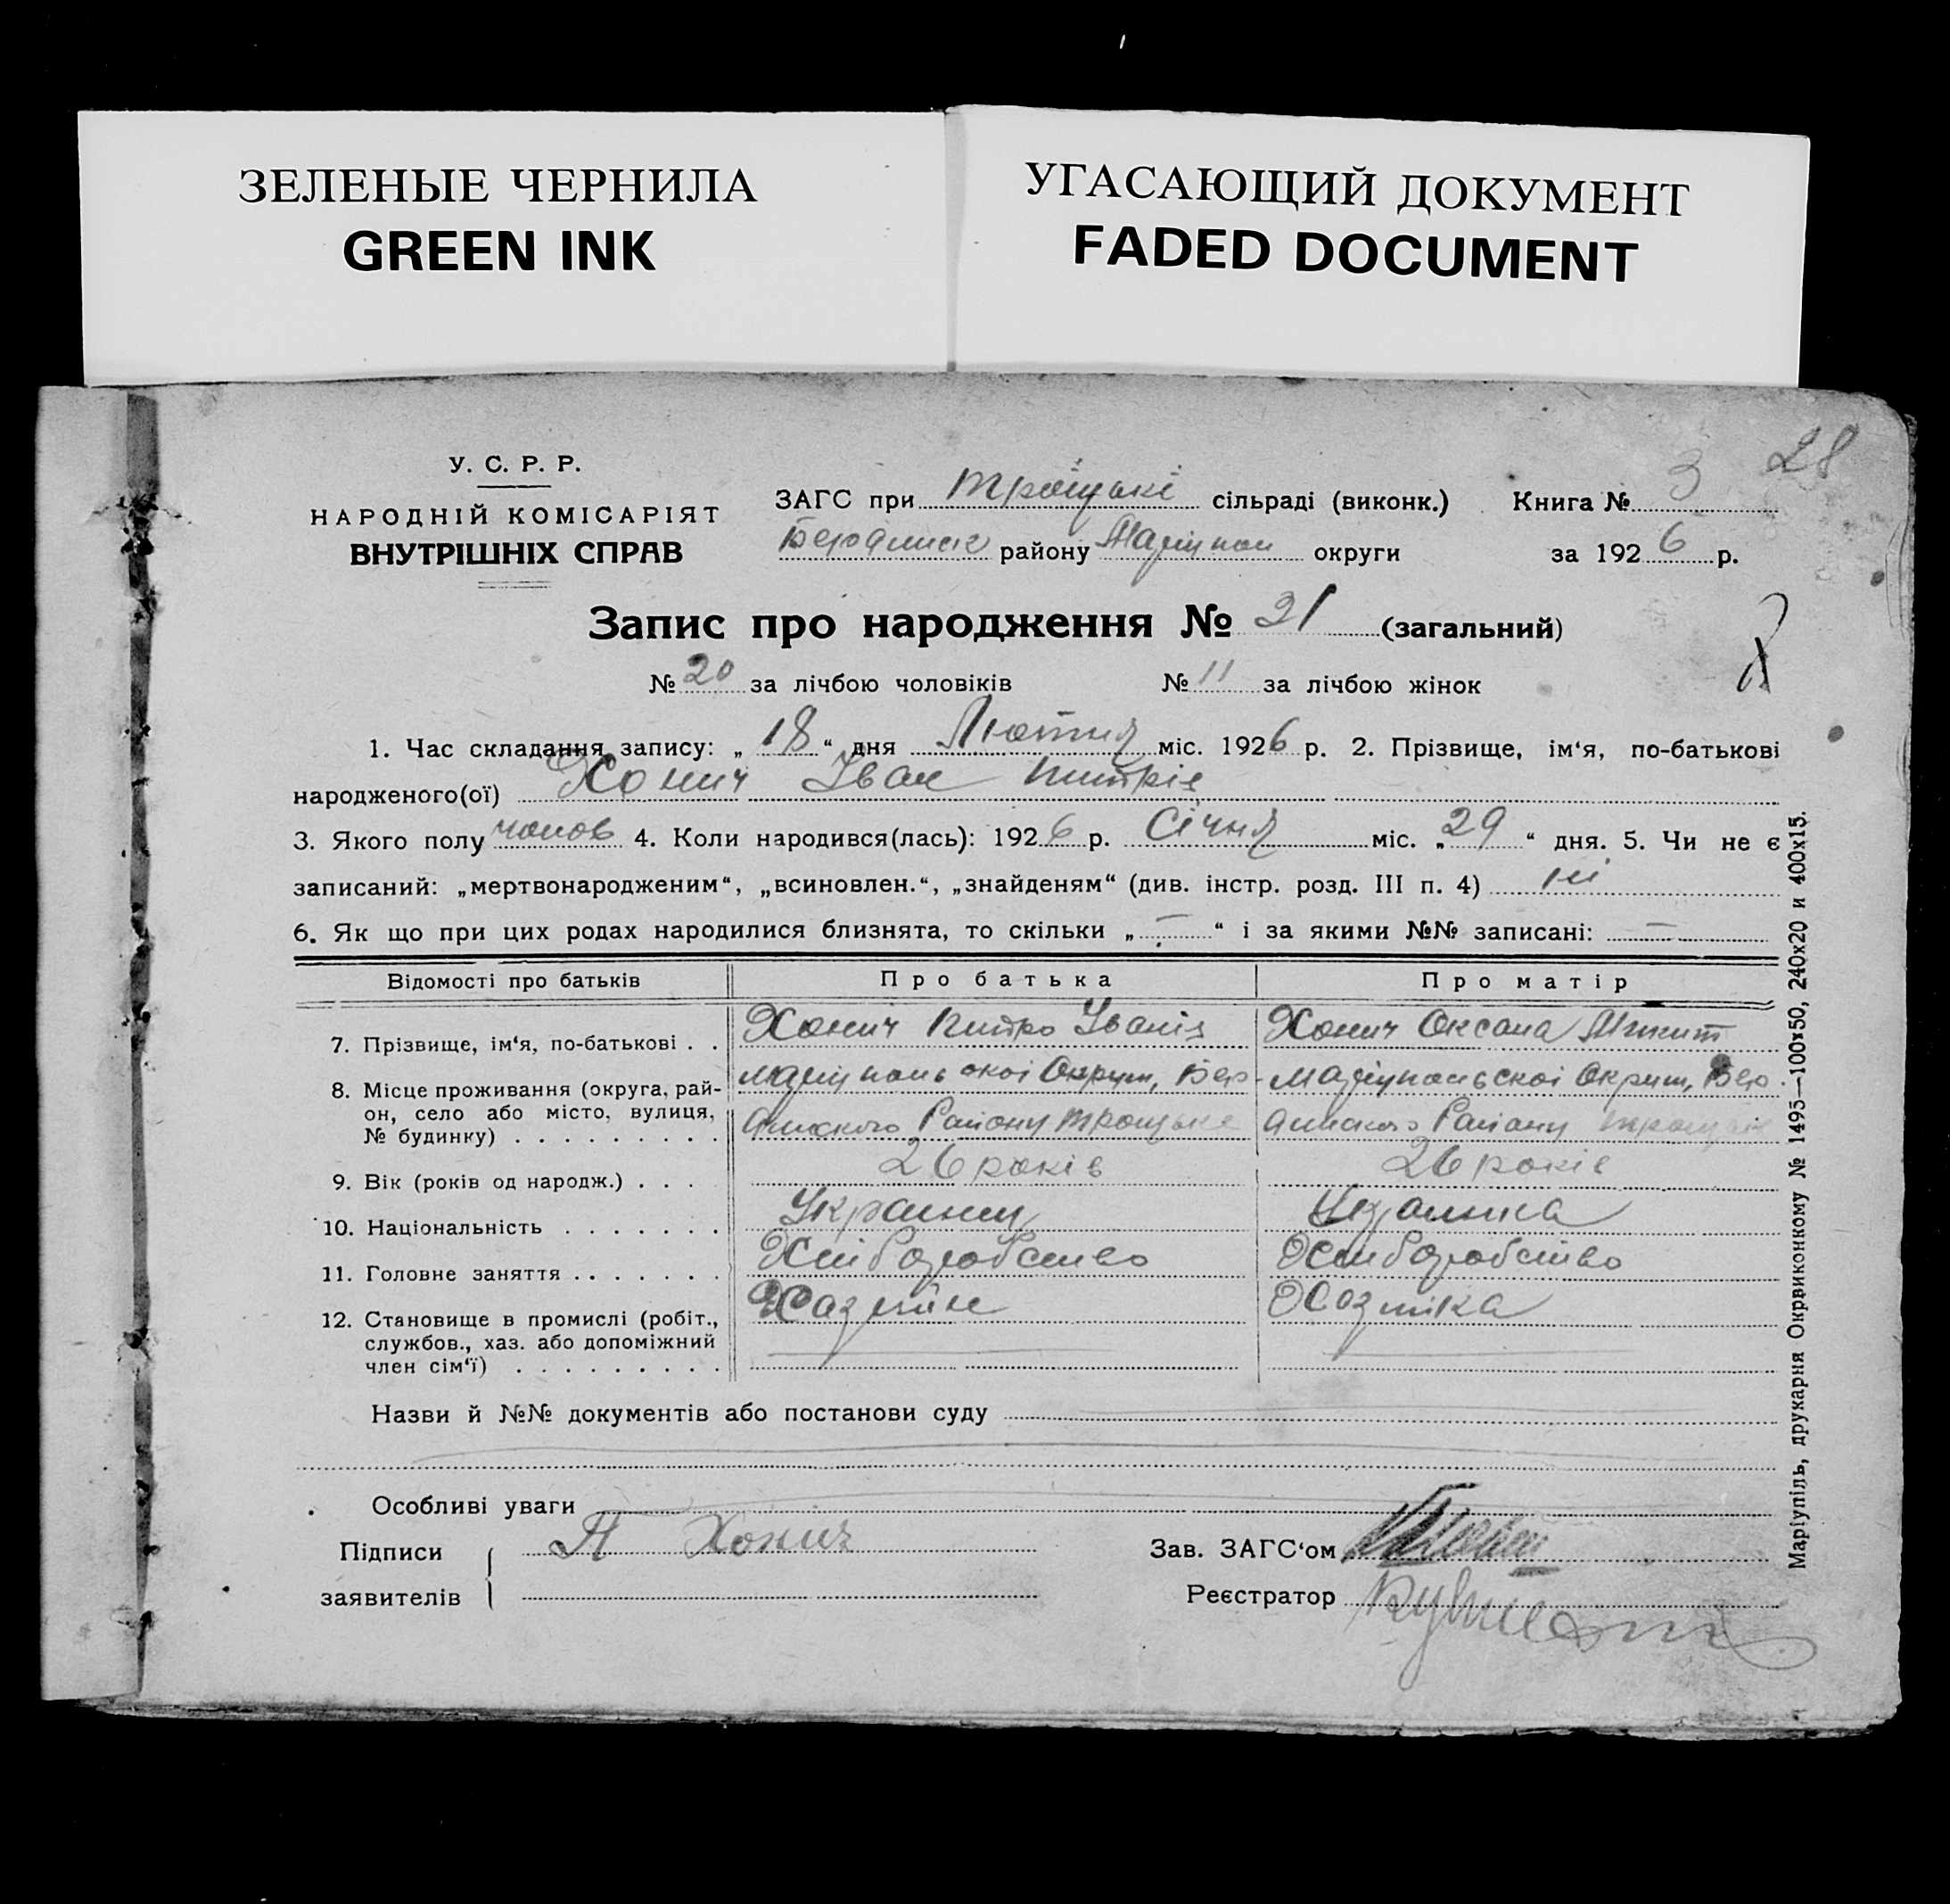 ЗЕЛЕНЫЕ ЧЕРНИЛА
GREEN INK
УГАСАЮЩИЙ ДОКУМЕНТ
FADED DOCUMENT
28
У. С. Р. Р.
НАРОДНІЙ КОМІСАРІЯТ
ВНУТРІШНІХ СПРАВ
ЗАГС при Троїцькі сільраді (виконк.) Книга № 3
району Маріупол округи за 1926 р.
Запис про народження № 31 (загальний)
№ 20 за лічбою чоловіків № 11 за лічбою жінок
1. Час складання запису: „18“ дня Лютия міс. 1926 р. 2. Прізвище, ім‘я, по-батькові
народженого(ої) Хонич Іван
3. Якого полу чолов 4. Коли народився(лась): 1926 р. Січня міс. „29“ дня. 5. Чи не є
записаний: „мертвонародженим“, „всиновлен.“, „знайденям“ (див. інстр. розд. III п. 4) ні
6. Як що при цих родах народилися близнята, то скільки „—“ і за якими №№ записані: —
Відомості про батьків Про батька Про матір
7. Прізвище, ім‘я, по-батькові . . Хонич Іванів Хонич Оксана
8. Місце проживання (округа, рай-
он, село або місто, вулиця,
№ будинку) . . . . . . . . . Маріупольскоі Округи, Бер- Маріупольскоі Округи, Бер-
Району Району
9. Вік (років од народж.) . . . 26 років 26 років
10. Національність . . . . . . . Украинец Украинка
11. Головне заняття . . . . . . . Хліборобство Хліборобство
12. Становище в промислі (робіт.,
службов., хаз. або допоміжний
член сім‘ї) . . . . . . . . . Хазяйін Хозяіка
Назви й №№ документів або постанови суду
Особливі уваги
Підписи
заявителів П Хонич
Зав. ЗАГС‘ом
Реєстратор
Маріупіль, друкарня Окрвиконкому № 1495—100x50, 240x20 и 400x15.